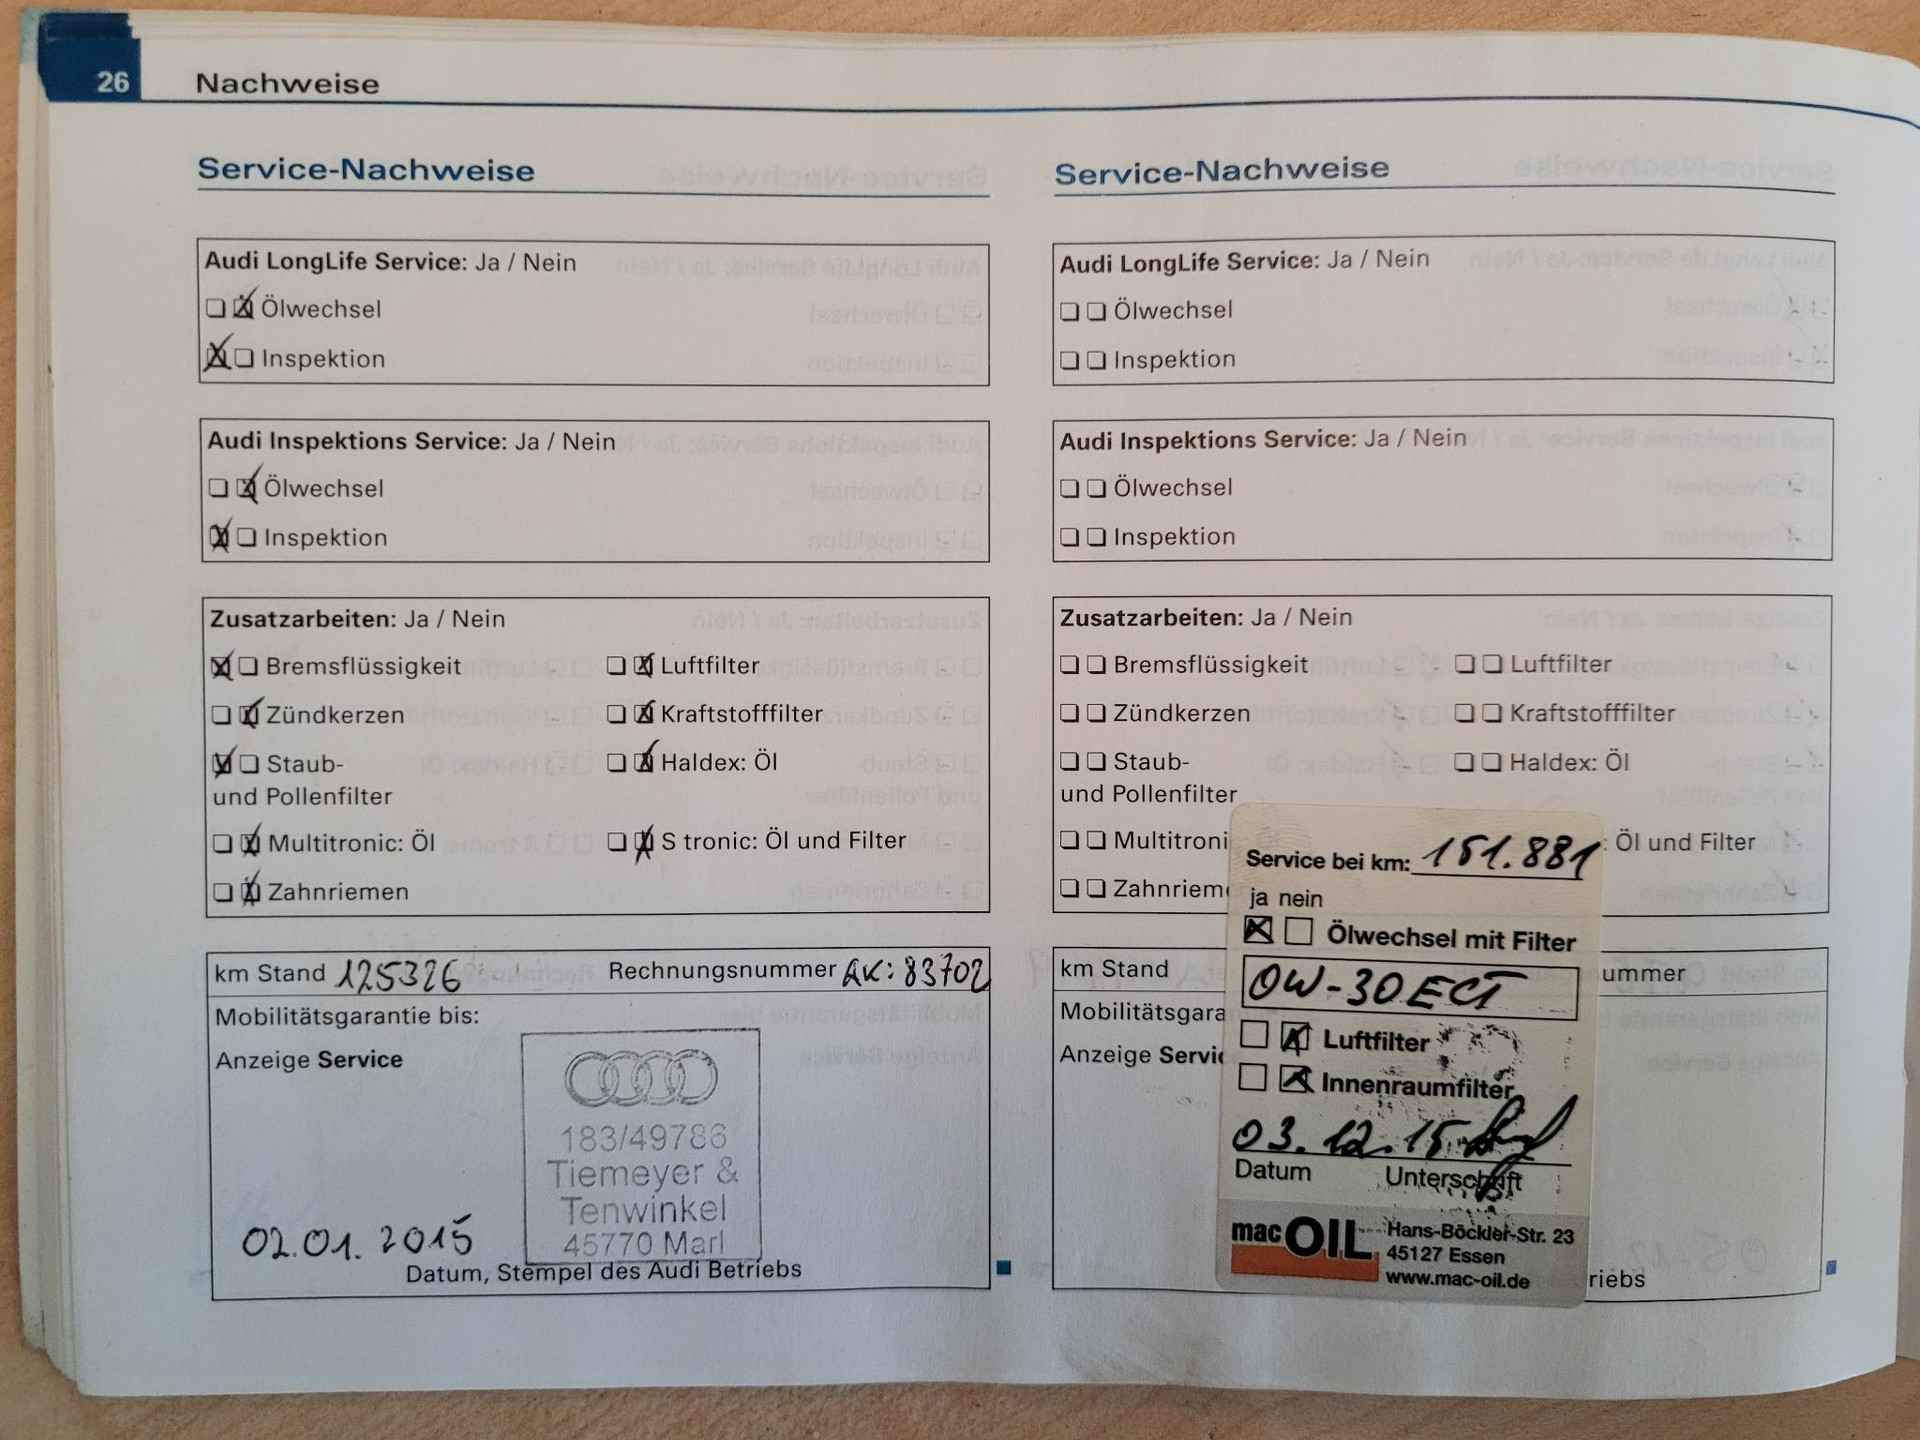 26 Nachweise
Service-Nachweise
Audi LongLife Service: Ja / Nein
Ölwechsel
Inspektion
Audi Inspektions Service: Ja / Nein
Ölwechsel
Inspektion
Zusatzarbeiten: Ja / Nein
Bremsflüssigkeit Luftfilter
Zündkerzen Kraftstofffilter
Staub- Haldex: Öl
und Pollenfilter
Multitronic: Öl S tronic: Öl und Filter
Zahnriemen
km Stand 125326 Rechnungsnummer AK: 83702
Mobilitätsgarantie bis:
Anzeige Service
183/49786
Tiemeyer &
Tenwinkel
45770 Marl
02.01.2015
Datum, Stempel des Audi Betriebs
Service-Nachweise
Audi LongLife Service: Ja / Nein
Ölwechsel
Inspektion
Audi Inspektions Service: Ja / Nein
Ölwechsel
Inspektion
Zusatzarbeiten: Ja / Nein
Bremsflüssigkeit Luftfilter
Zündkerzen Kraftstofffilter
Staub- Haldex: Öl
und Pollenfilter
Multitroni : Öl und Filter
Zahnriem
km Stand ummer
Mobilitätsgara
Anzeige Servic
riebs
Service bei km: 151.881
ja nein
Ölwechsel mit Filter
0W-30 ECT
Luftfilter
Innenraumfilter
03.12.15
Datum Unterschrift
mac OIL
Hans-Böckler-Str. 23
45127 Essen
www.mac-oil.de